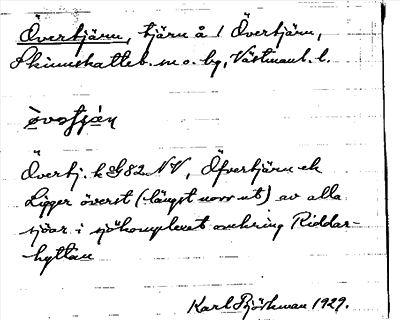 Övertjärn, tjärn å 1 Övertjärn,
Skinnskatteb. sn o. bg, Västmanl. l.
övəṣṭjạ̈ṇ
Övertj. k G82 NV, Öfvertjärn ek
Ligger överst (längst norr ut) av alla
sjöar i sjökomplexet omkring Riddar-
hyttan
Karl Björkman 1929.